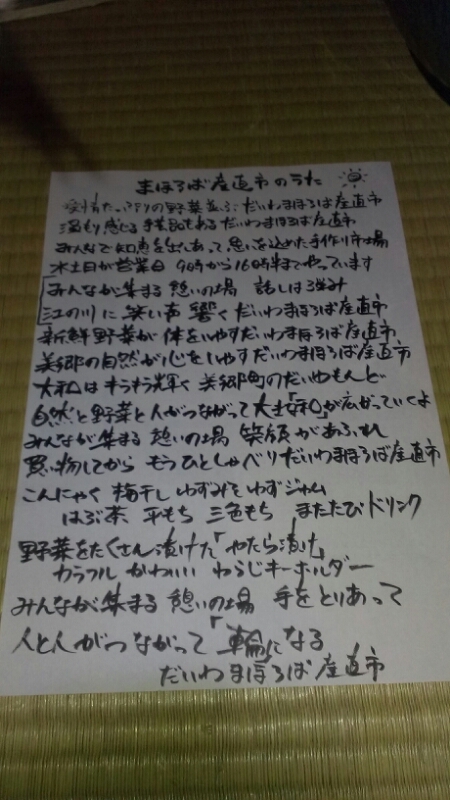 まほろば産直市のうた
愛情たっぷりの野菜並ぶだいわまほろば産直市
温もり感じる手芸品もあるだいわまほろば産直市
みんなで知恵を出しあって思いを込めた手作り市場
水土日が営業日 9時から16時半までやっています
みんなが集まる 憩いの場 話しは弾み
江の川に 笑い声 響くだいわまほろば産直市
新鮮野菜が 体をいやすだいわまほろば産直市
美郷の自然が心をいやすだいわまほろば産直市
大和はキラキラ輝く 美郷町のだいやもんど
自然と野菜と人がつながって大きな「和」が広がっていくよ
みんなが集まる 憩いの場 笑顔があふれ
買い物してから もうひとしゃべりだいわまほろば産直市
こんにゃく 梅干し ゆずみそゆずジャム
はぶ茶 平もち 三色もち またたびドリンク
野菜をたくさん漬けた「やたら漬け」
カラフル かわいい わらじキーホルダー
みんなが集まる 憩いの場 手をとりあって
人と人がつながって「輪」になる
だいわまほろば産直市